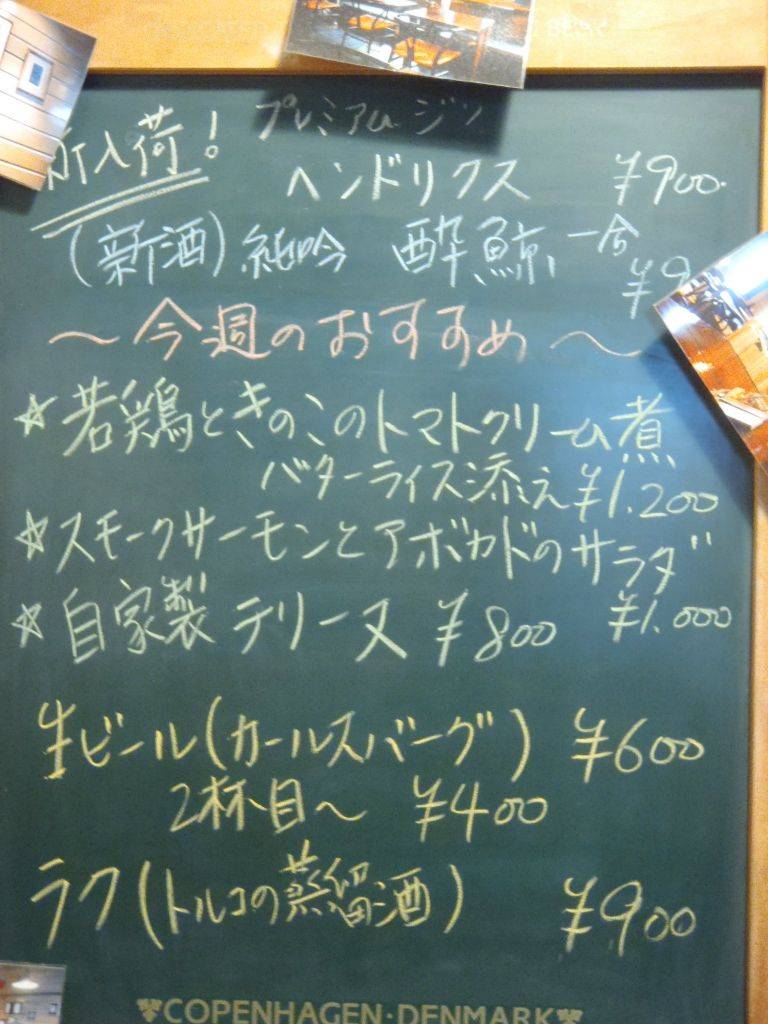 新入荷! プレミアムジン
ヘンドリクス ¥900.
(新酒)純吟 酔鯨 一合
¥9
～今週のおすすめ～
☆若鶏ときのこのトマトクリーム煮
バターライス添え¥1.200
☆スモークサーモンとアボカドのサラダ
¥1.000
☆自家製テリーヌ ¥800
生ビール(カールスバーグ) ¥600
2杯目～ ¥400
ラク(トルコの蒸留酒) ¥900
COPENHAGEN・DENMARK